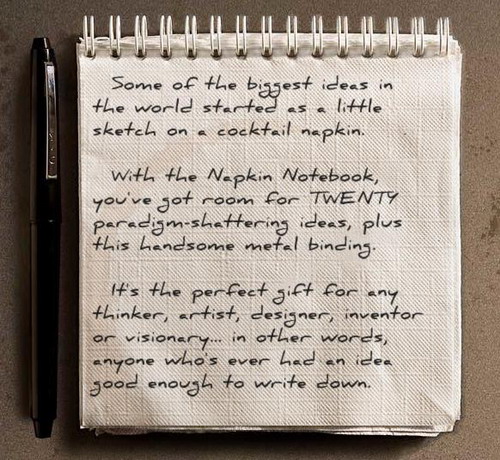 Some of the biggest ideas in
the world started as a little
sketch on a cocktail napkin.
With the Napkin Notebook,
you've got room for TWENTY
paradigm-shattering ideas, plus
this handsome metal binding.
It's the perfect gift for any
thinker, artist, designer, inventor
or visionary... in other words,
anyone who's ever had an idea
good enough to write down.